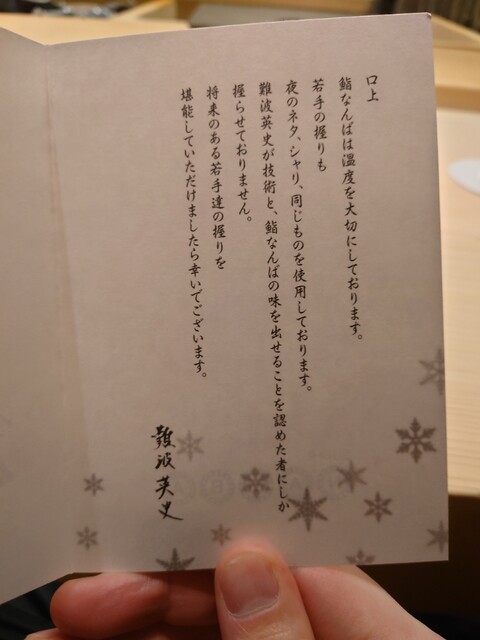 口上
鮨なんばは温度を大切にしております。
若手の握りも
夜のネタ、シャリ、同じものを使用しております。
難波英史が技術と、鮨なんばの味を出せることを認めた者にしか
握らせておりません。
将来のある若手達の握りを
堪能していただけましたら幸いでございます。
難波英史